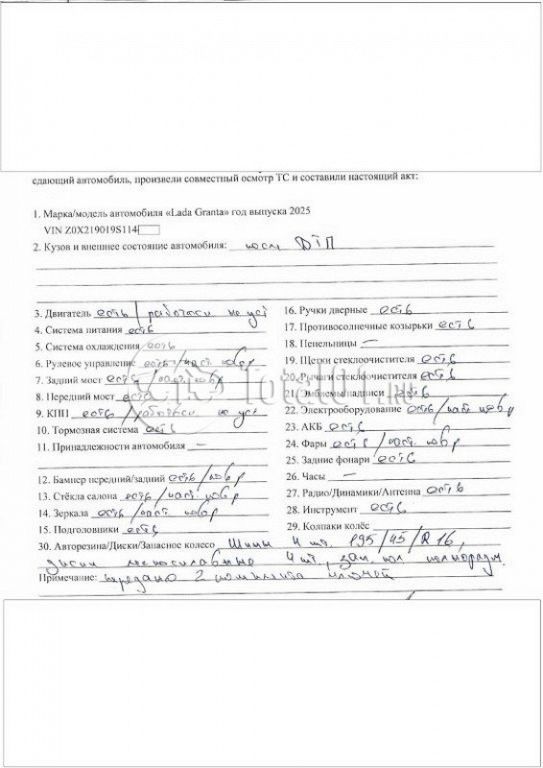 сдающий автомобиль, произвели совместный осмотр ТС и составили настоящий акт:
1. Марка/модель автомобиля «Lada Granta» год выпуска 2025
VIN Z0X219019S114
2. Кузов и внешнее состояние автомобиля: после ДТП
3. Двигатель есть / работосп. не уст
4. Система питания есть
5. Система охлаждения есть
6. Рулевое управление есть/част. повр
7. Задний мост есть / част. повр
8. Передний мост есть
9. КПП есть / работосп. не уст
10. Тормозная система есть
11. Принадлежности автомобиля —
12. Бампер передний/задний есть/повр
13. Стёкла салона есть/част. повр
14. Зеркала есть/част. повр
15. Подголовники есть
16. Ручки дверные есть
17. Противосолнечные козырьки есть
18. Пепельницы —
19. Щетки стеклоочистителя есть
20. Рычаги стеклоочистителя есть
21. Эмблемы/надписи есть
22. Электрооборудование есть/част. повр
23. АКБ есть
24. Фары есть /част. повр
25. Задние фонари есть
26. Часы —
27. Радио/Динамики/Антенна есть
28. Инструмент есть
29. Колпаки колёс —
30. Авторезина/Диски/Запасное колесо Шины 4 шт. 195/45/R16,
диски легкосплавные 4 шт, зап. кол полноразм.
Примечание: передано 2 комплекта ключей